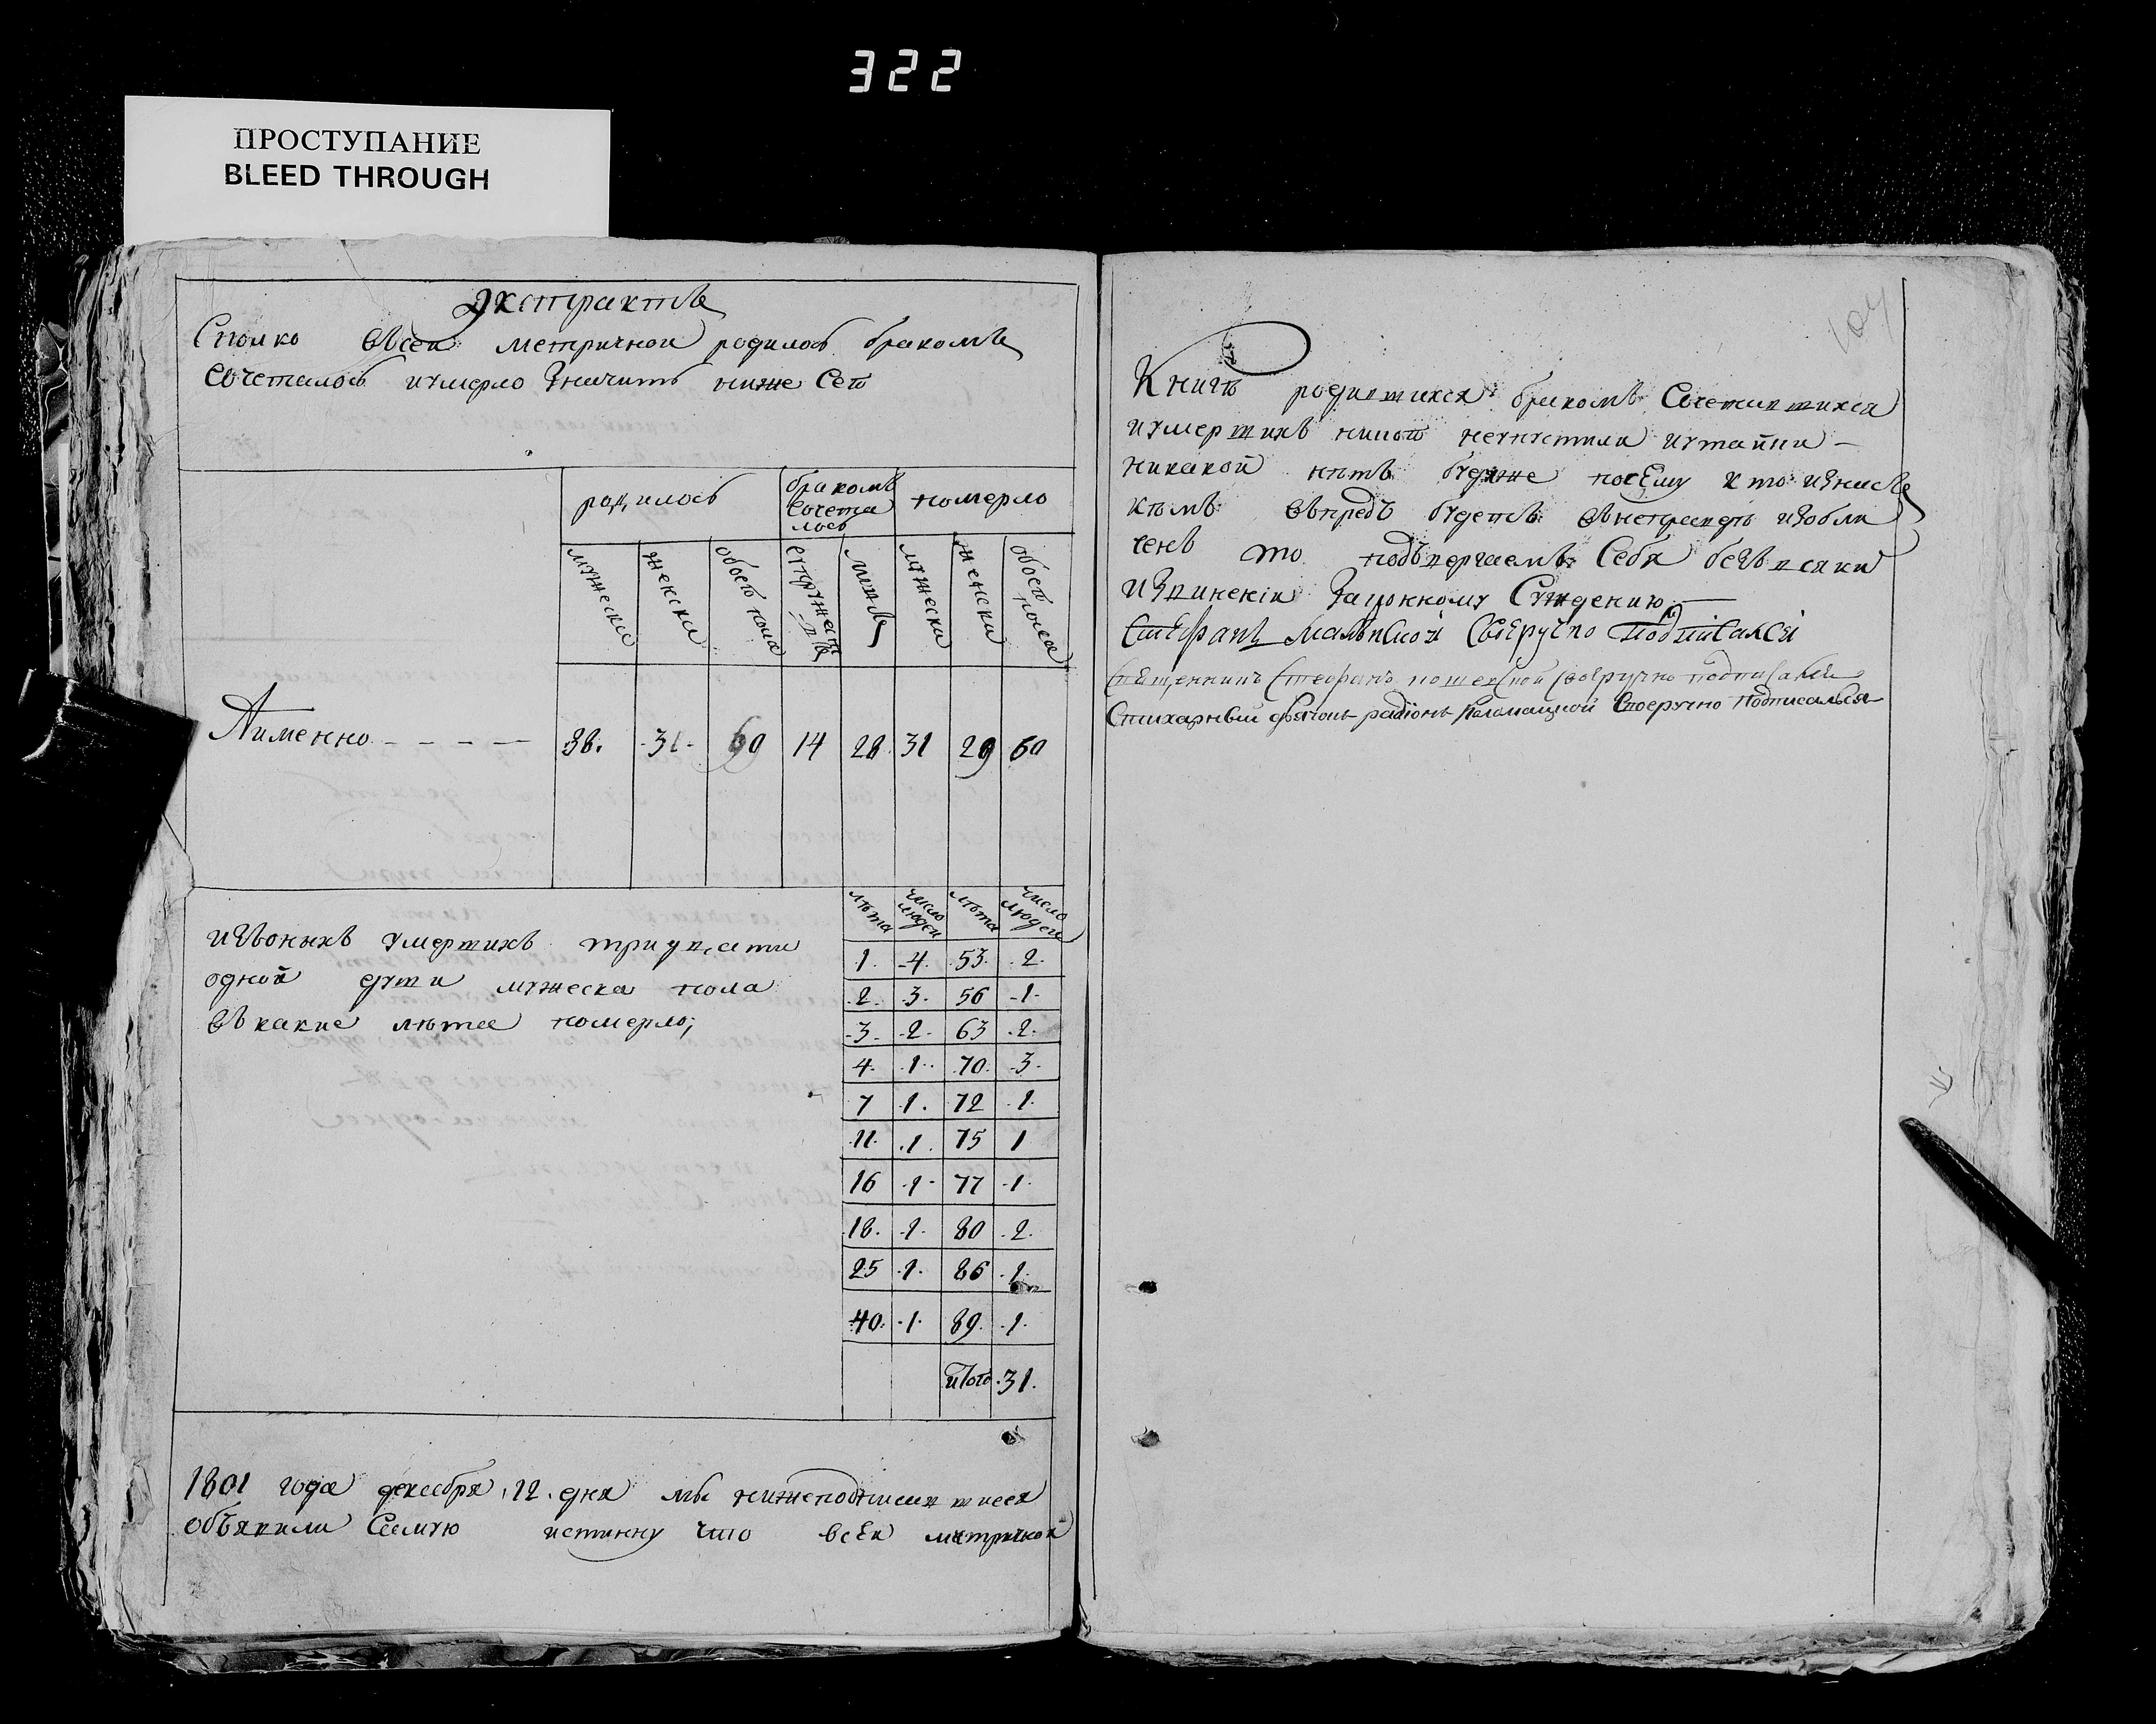 322
ПРОСТУПАНИЕ
BLEED THROUGH
Экстрактъ
Сколко въсей метричной родилось бракомъ
Сочеталось иумерло Значитъ ниже Сего
родилось
бракомъ
Сочета
лось
померло
мужеска
женска
обоего пола
супружест
въ
мужеска
женска
обоего
пола
Аименно - - - - 38. 31. 69 14 28 31 29 60
лѣта число людей лѣта число людей
изъоныхъ умершихъ тридцати
одной души мужеска пола
въкакие лѣта померло;
1. 4. 53. 2.
2. 3. 56 1.
3. 2. 63 2.
4. 1. 70. 3.
7 1. 72 1.
11. 1. 75 1
16 1. 77 1.
18. 1. 80 2.
25 1. 86 1.
40. 1. 89. 1.
Итого 31.
1801 года декабря 12 дня мы нижеподписавшиеся
объявили Самую истинну что всей метричной
104
Книги родившихся бракомъ Сочетавшихся
иумершихъ никого неупустили иутайки
никакой нѣтъ буджже посему кто изнасъ
кѣмъ въпредъ будетъ изобли
ченъ то подъвергаемъ Себя безъвсяки
извинении Законному Суждению
Стефанъ своеручно подписался
Священникъ Стефанъ своеручно подписался
Стихарный дьячокъ своеручно подписался